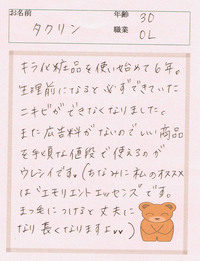 お名前 タクリン 年齢 30
職業 OL
キラ化粧品を使い始めて6年。
生理前になると必ずできていた
ニキビができなくなりました。
また広告料がないのでいい商品
を手頃な値段で使えるのが
ウレシイです。(ちなみに私のオススメ
は“エモリエントエッセンス”です。
まつ毛につけると丈夫に
なり長くなりますよ♥♥)